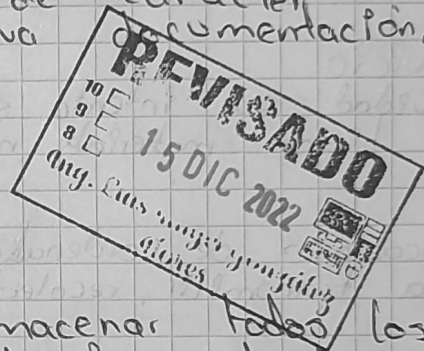 de carácter
va documentación.
REVISADO
10
9
8
15 DIC 2022
Ing. Luis
macenar todos los